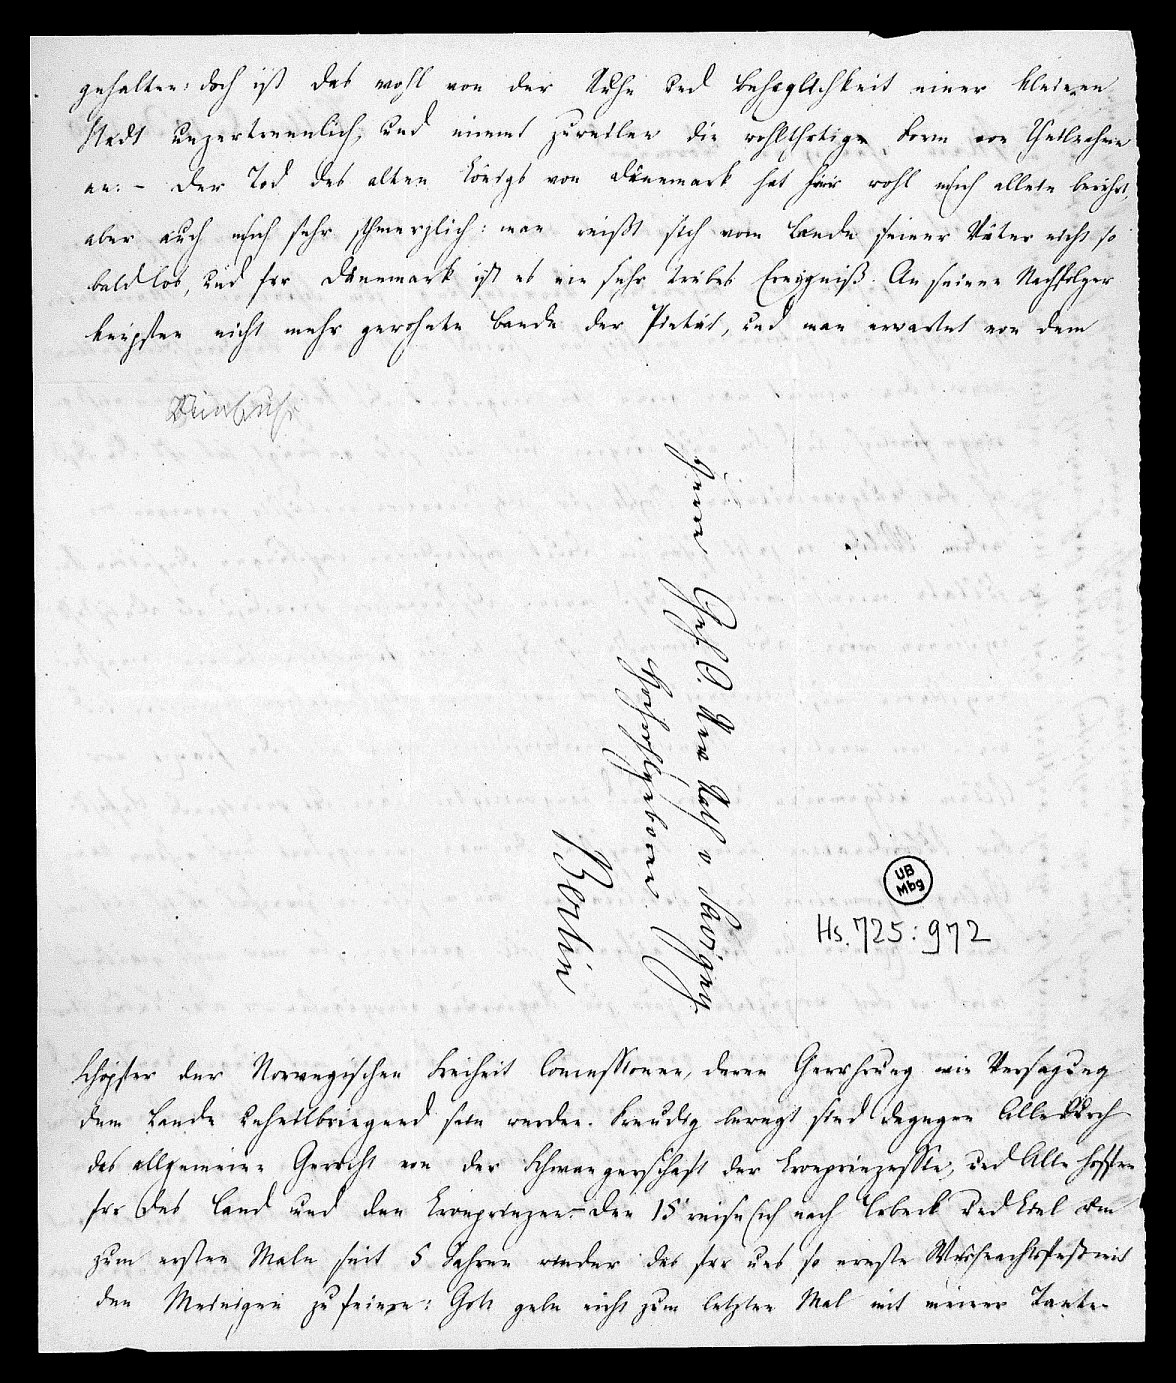 gehalten: doch ist das wohl von der Ruhe und Behaglichkeit einer kleinen
Stadt unzertrennlich, und nimmt zuweilen die wohlthätige Form von Theilnahme
an. – Der Tod des alten Königs von Dänemark hat hier wohl mich allein berührt,
aber auch mich sehr schmerzlich: man reißt sich vom Lande seiner Väter nicht so
bald los, und für Dänemark ist es ein sehr trübes Ereigniß. An seinen Nachfolger
knüpfen nicht mehr gewohnte Bande der Pietät, und man erwartet von dem
Herrn Geh. O. Rev Rath v Savigny
Hochwohlgeboren
Berlin
UB
Mbg
Hs. 725:972
Schöpfer der Norwegischen Freiheit Concessionen, deren Gewährung wie Versagung
dem Lande unheilbringend sein werden. Freudig bewegt sind dagegen Alle durch
das allgemeine Gerücht von der Schwangerschaft der Kronprinzessin, und Alle hoffen
für das Land und den Kronprinzen. – Den 15 reise ich nach Lübeck und Kiel um
zum ersten Male seit 5 Jahren wieder das für uns so ernste Weihnachtsfest mit
den Meinigen zu feiern: Gott gebe nicht zum letzten Mal mit meiner Tante